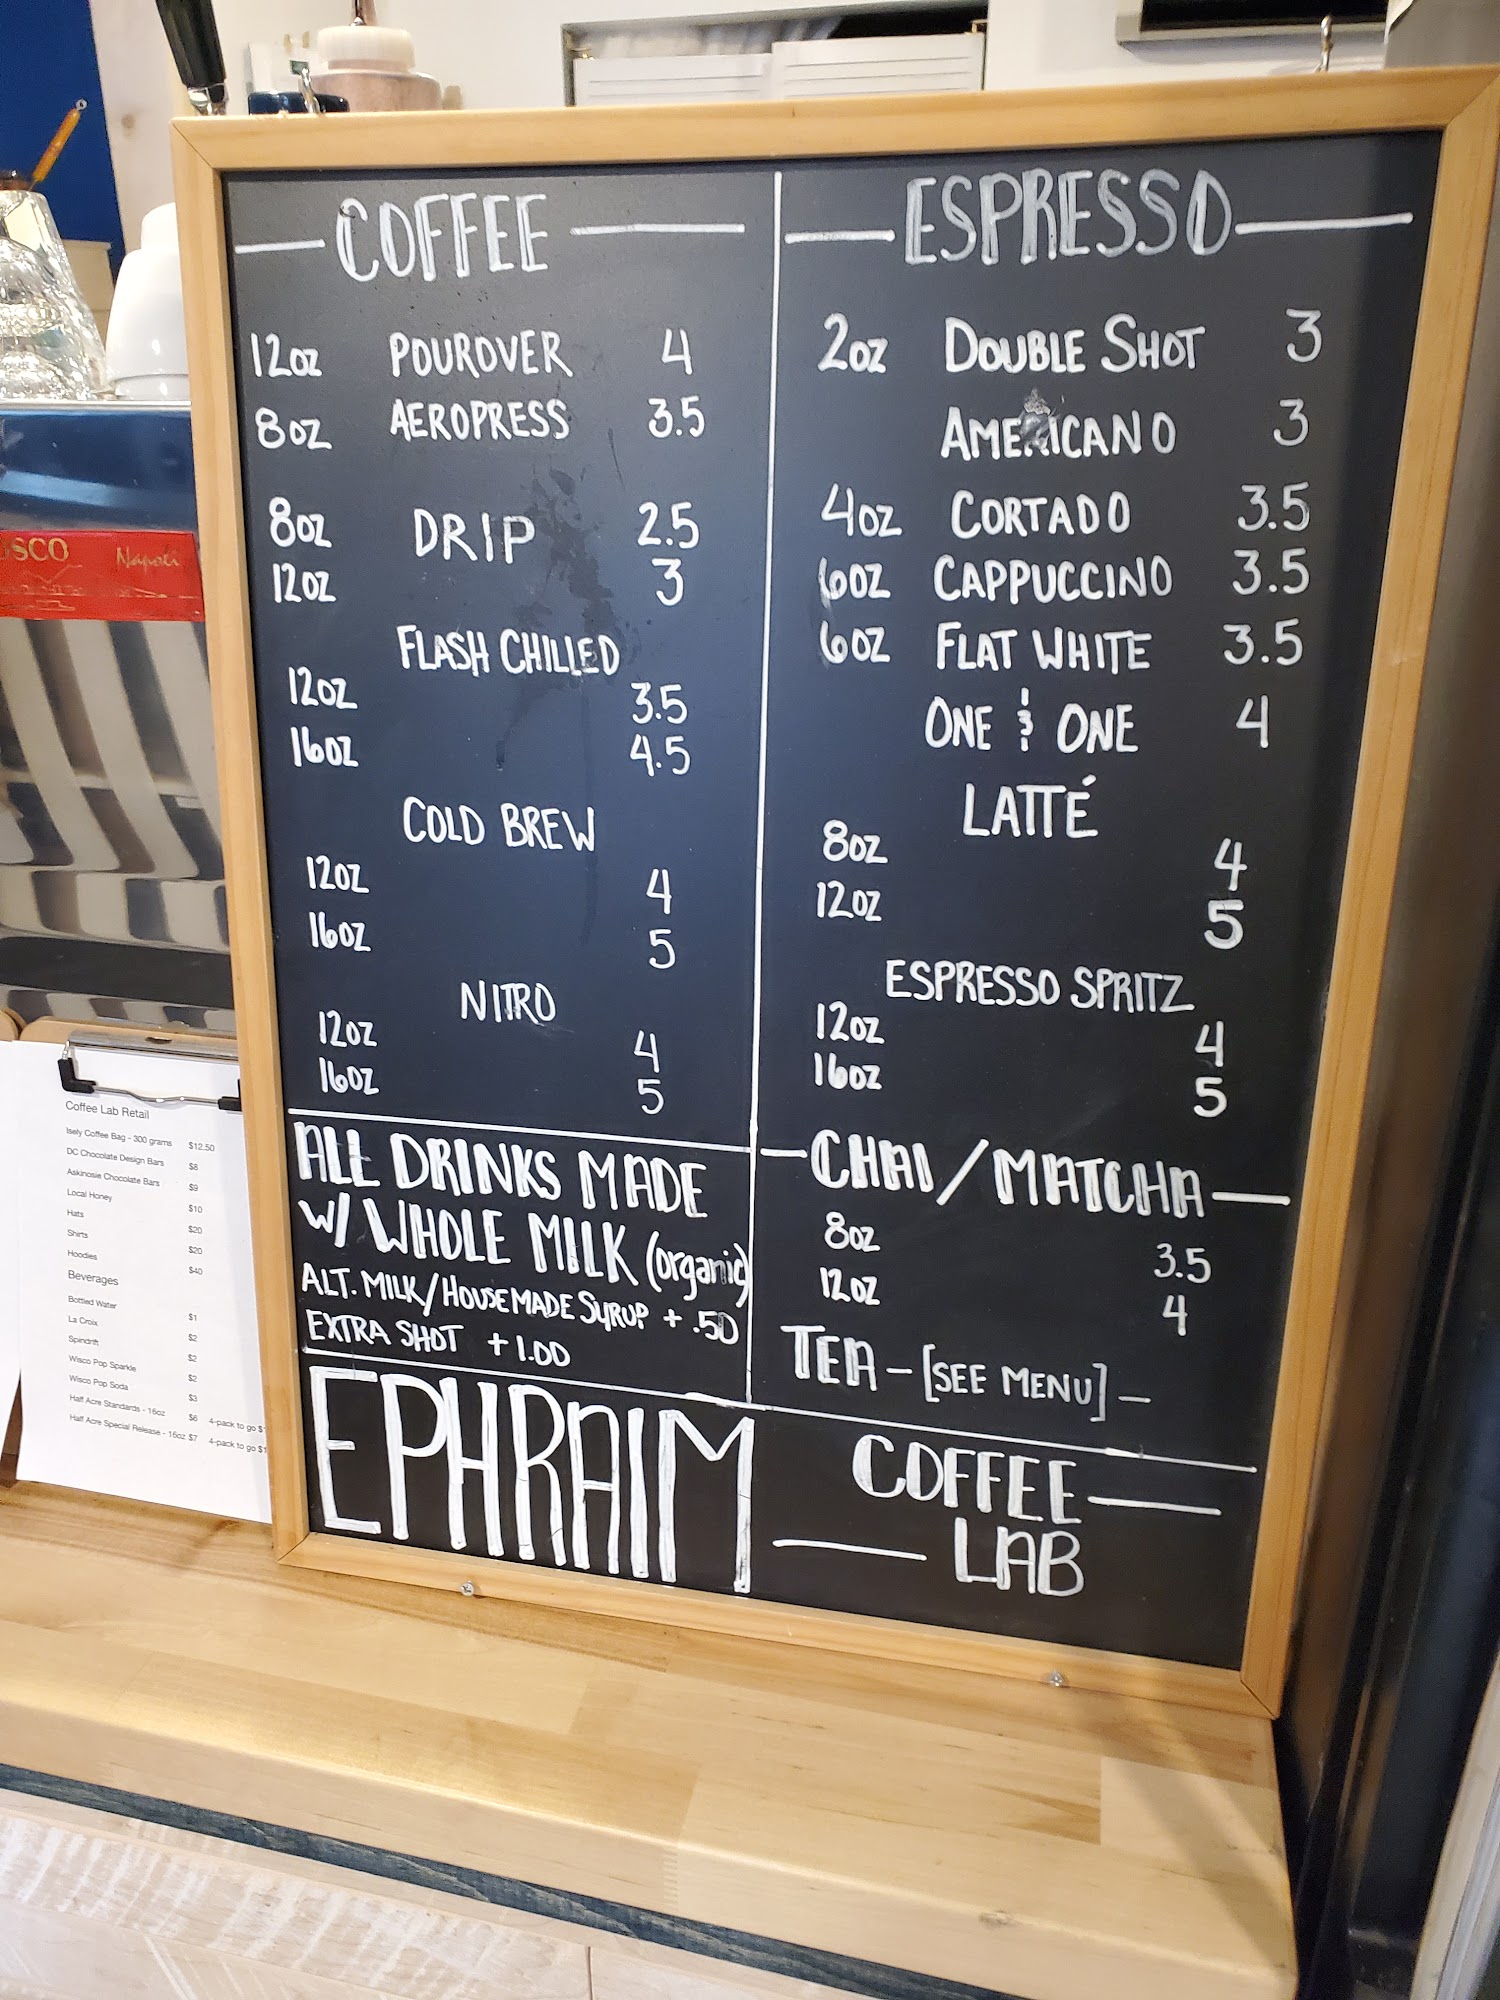 COFFEE
12oz POUROVER 4
8oz AEROPRESS 3.5
8oz DRIP 2.5
12oz 3
FLASH CHILLED
12oz 3.5
16oz 4.5
COLD BREW
12oz 4
16oz 5
NITRO
12oz 4
16oz 5
ALL DRINKS MADE
W/ WHOLE MILK (organic)
ALT. MILK/HOUSEMADE SYRUP + .50
EXTRA SHOT + 1.00
ESPRESSO
2oz DOUBLE SHOT 3
AMERICANO 3
4oz CORTADO 3.5
6oz CAPPUCCINO 3.5
6oz FLAT WHITE 3.5
ONE & ONE 4
LATTÉ
8oz 4
12oz 5
ESPRESSO SPRITZ
12oz 4
16oz 5
CHAI/MATCHA
8oz 3.5
12oz 4
TEA - [SEE MENU] -
EPHRAIM
COFFEE
LAB
Napoli
Coffee Lab Retail
Isely Coffee Bag - 300 grams $12.50
DC Chocolate Design Bars $8
Askinosie Chocolate Bars $9
Local Honey $10
Hats $20
Shirts $20
Hoodies $40
Beverages
Bottled Water $1
La Croix $2
Spindrift $2
Wisco Pop Sparkle $2
Wisco Pop Soda $3
Half Acre Standards - 16oz $6 4-pack to go
Half Acre Special Release - 16oz $7 4-pack to go